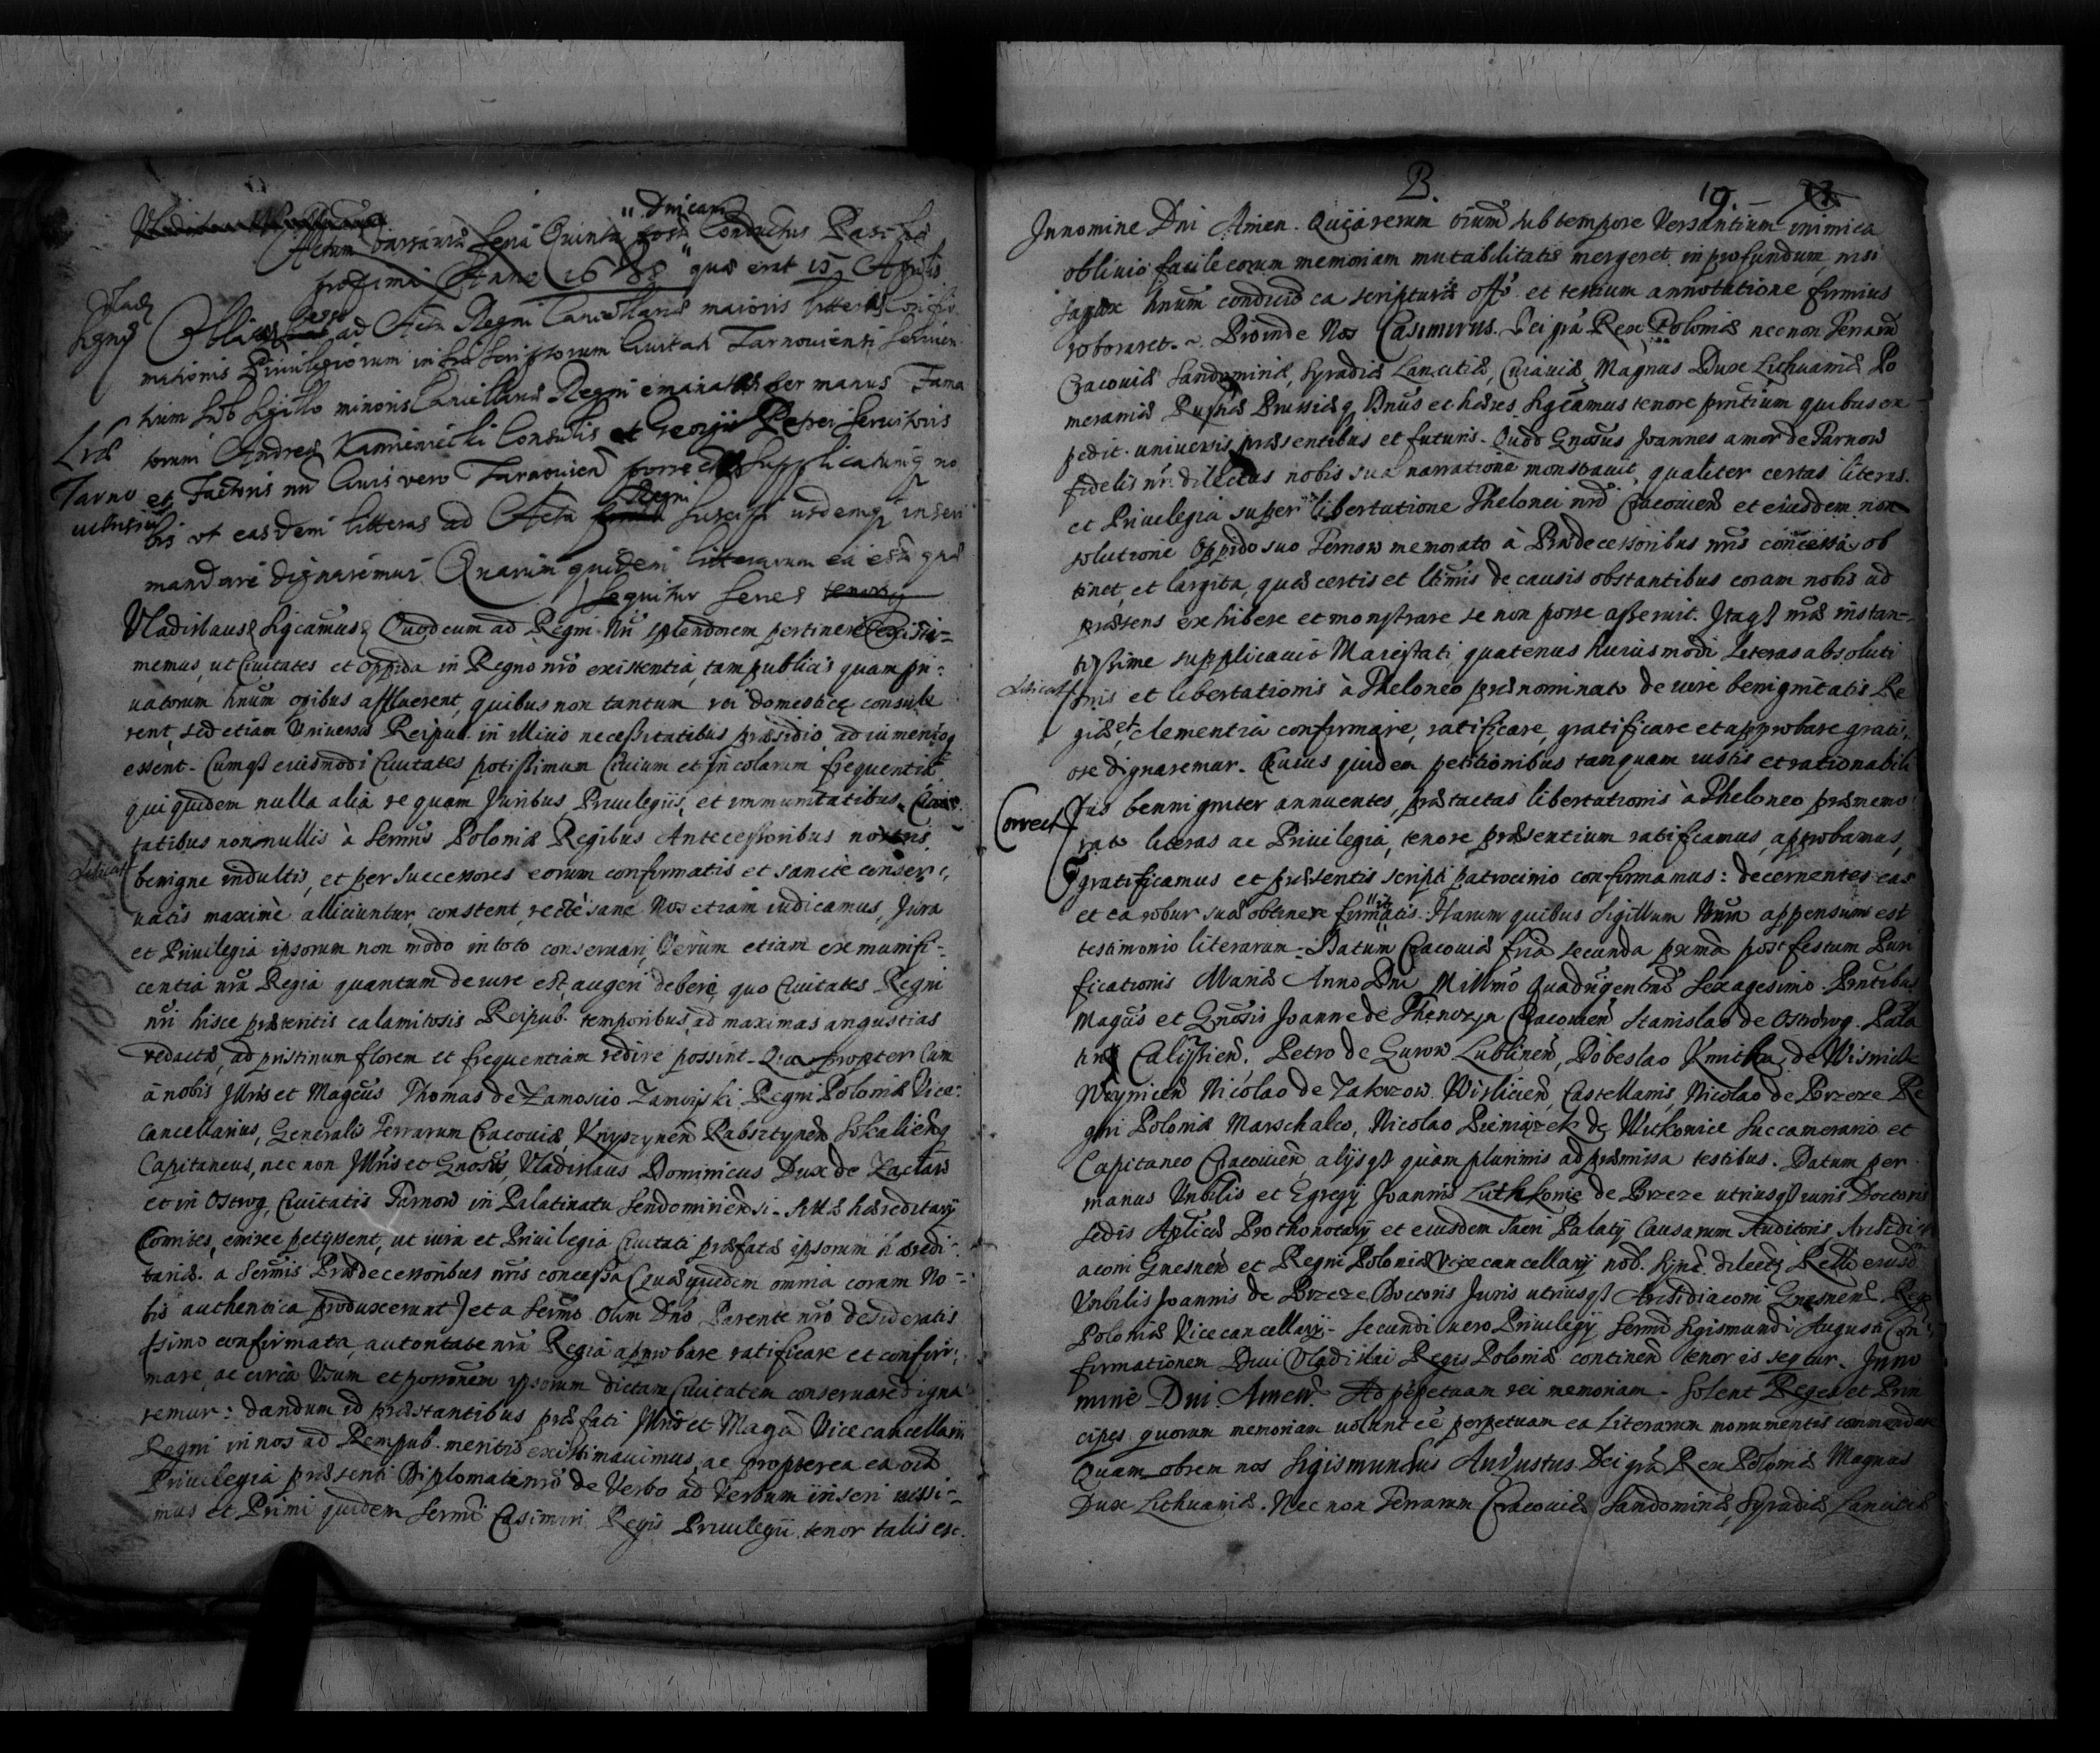 Actum Varsaviæ Feria Quinta post Dnicam Conductus Paschæ
proxima Anno 1638 quæ erat 15 Aprilis
ad Acta Regni Cancellariæ maioris litteræ Confir
mationis Privilegiorum infra scriptorum Civitati Tarnoviensi servien
tium sub sigillo minoris Cancellariæ Regni emanatæ per manus Fama
torum Andreæ Kamieniecki Consulis et Georgii Petri
et Factoris Civis vero Tarnovien porrectæ supplicatumq no
bis ut easdem litteras ad Acta Regni suscipi usdemq inseri
mandare dignaremur Quarum quidem litterarum ea est quæ
sequitur series
Litæ
Tarno
viensiu
Vladislaus Sigcamus Quod cum ad Regni Nri splendorem pertinere existi-
memus, ut Civitates et Oppida in Regno nro existentia, tam publicis quam pri:
vatorum hnum opibus affluerent, quibus non tantum rei domesticę consule
rent, sed etiam Universæ Reipub. in illius necessitatibus præsidio, adiumentoq
essent. Cumq eiusmodi Civitates potissimum Civium et Incolarum frequentia
qui quidem nulla alia re quam Juribus, Privilegiis, et immunitatibus, Civi
tatibus nonnullis à Sermis Poloniæ Regibus Antecessoribus nostris
benigne indultis, et per successores eorum confirmatis et sanctè conser,
vatis maximè alliciuntur, constent, rectè sane Nos etiam iudicamus, Jura
et Privilegia ipsorum non modo in toto conservari, Verùm etiam ex munifi-
centia nra Regia quantum de iure est, augeri debere, quo Civitates Regni
nri hisce præteritis calamitosis Reipub. temporibus, ad maximas angustias
redactæ, ad pristinum florem et frequentiam redire possint. Qua propter Cum
à nobis Illris et Magcus Thomas de Zamoscio Zamoyski Regni Poloniæ Vice:
Cancellarius, Generalis Terrarum Cracoviæ, Knyszynen Rabsztynen Sokalienq
Capitaneus, nec non Illris et Gnosus, Vladislaus Dominicus Dux de Zaslaw
et in Ostrog, Civitatis Tarnow in Palatinatu Sendomiriensi sitæ hæreditarij
Comites, enixe petyssent, ut iura et Privilegia Civitati præfatæ ipsorum hæredi-
tariæ a Sermis Prædecessoribus nris concessa (quæ quidem omnia coram No-
bis authentica produxerunt) et a Sermo olim Dno Parente nro desideratis
simo confirmata, autoritate nra Regia approbare ratificare et confir,
mare, ac circa Usum et possonem ipsorum dictam Civitatem conservare digna
remur: dandum id præstantibus præfati Illris et Magci Vicecancellarii
Regni in nos ad Rempub. meritis existimavimus, ac propterea ea oia
Privilegia præsenti Diplomati nro de Verbo ad Verbum inseri iussi-
mus et Primi quidem Sermi Casimiri Regis Privilegii tenor talis est.
B. 19.
In nomine Dni Amen. Quia rerum oium sub tempore Versantium inimica
oblivio facile eorum memoriam mutabilitatis mergeret in profundum, nisi
sagax hnum ea scripturæ et testium annotatione firmius
roboraret. Proinde Nos Casimirus Dei gra Rex Poloniæ nec non Terrarum
Cracoviæ Sandomiriæ, Syradiæ Lanciciæ, Cuiaviæ, Magnus Dux Lithuaniæ Po
meraniæ Russiæ Prussiæq Dnus et hæres. Sigcamus tenore pntium quibus ex
pedit universis præsentibus et futuris. Quod Gnosus Joannes amor de Tarnow
fidelis nr. dilectus nobis sua narratione monstravit, qualiter certas literas.
et Privilegia super libertatione Thelonei nri Cracovien et eiusdem non
solutione Oppido suo Tarnow memorato à Prædecessoribus nris concessa, ob
tinet, et largita, quæ certis et ltimis de causis obstantibus coram nobis ad
præsens exhibere et monstrare se non posse asseruit. Itaq nræ instan-
tissime supplicavit Maiestati, quatenus huiusmodi Literas absoluti
onis et libertationis à Theloneo prænominato de iure benignitatis Re
giæ et clementia confirmare, ratificare, gratificare et approbare grati,
ose dignaremur. Cuius quidem petitionibus tanquam iustis et rationabili
bus bennigniter annuentes, prætactas libertationis à Theloneo præmemo
rato literas ac Privilegia, tenore præsentium ratificamus, approbamus,
gratificamus et præsentis scripti patrocinio confirmamus: decernentes eas
et ea robur suæ obtinere firmitatis. Harum quibus Sigillum Nrum appensum est
testimonio literarum. Datum Cracoviæ fria secunda prima post festum Puri
ficationis Mariæ Anno Dni Millmo Quadringentmo Sexagesimo. Pntibus
Magcis et Gnosis Joanne de Thenczyn Cracovien Stanislao de Ostrorog Pala
tinis Calissien, Petro de Gurow Lublinen, Dobeslao Kmitha de Wisnicze
Woynicien Nicolao de Zakrzow Wislicien, Castellanis, Nicolao de Brzeze Re
gni Poloniæ Marschalco, Nicolao Pieniążek de Witkowice Succamerario et
Capitaneo Cracovien, alijsq quàm plurimis ad præmissa testibus. Datum per
manus Vnbilis et Egregij Joannis Luthkonis de Brzeze utriusq iuris Doctoris
Sedis Aplicæ Prothonotarij et eiusdem Sacri Palatij Causarum Auditoris, Archidi
aconi Gnesnen et Regni Poloniæ Vicecancellarij nob. sync. dilecti Relli eiusd
Vnbilis Joannis de Brzeze Doctoris Juris utriusq Archidiaconi Gnesnens, Regni
Poloniæ Vicecancellarij. Secundi vero Privilegij Sermi Sigismundi Augusti Con
firmationem Divi Vladislai Regis Poloniæ continen tenor is seqtur. In no
mine Dni Amen. Ad ppetuam rei memoriam. Solent Reges et Prin
cipes quorum memoriam volunt eē perpetuam ea Literarum monumentis commendare
Quam obrem nos Sigismundus Augustus Dei gra Rex Poloniæ Magnus
Dux Lithuaniæ. Nec non Terrarum Cracoviæ Sandomiriæ, Syradiæ Lanciciæ
Correct